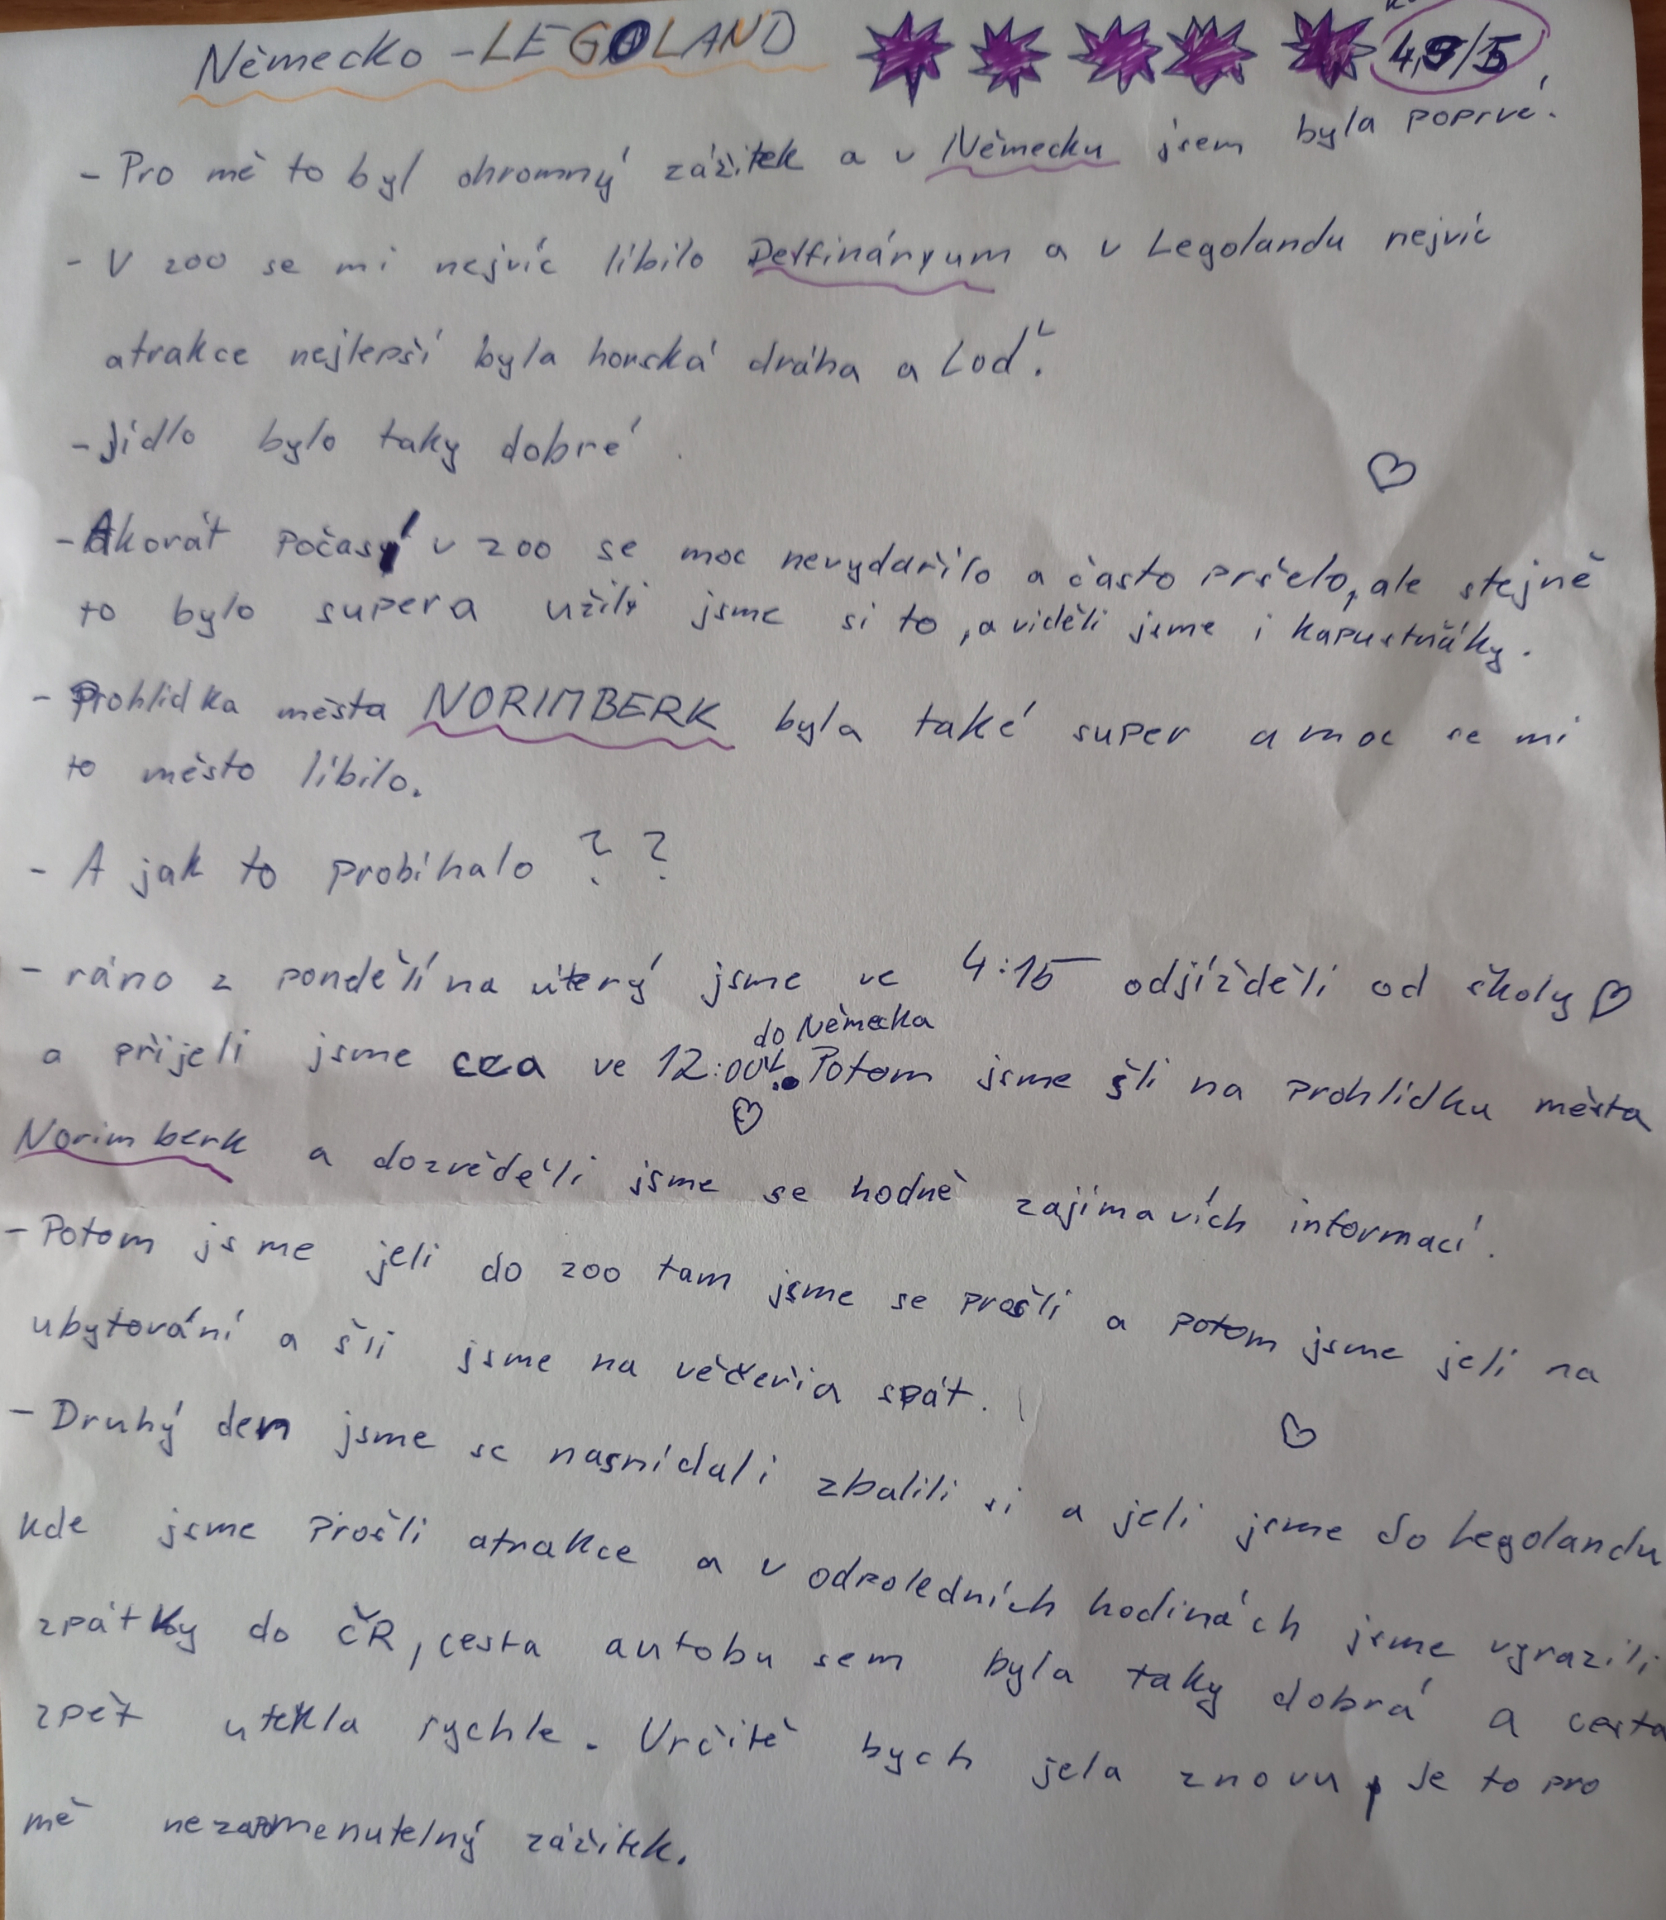 Německo - LEGOLAND 4,9/5
- Pro mě to byl ohromný zážitek a v Německu jsem byla poprvé.
- V zoo se mi nejvíc líbilo Delfináryum a v Legolandu nejvíc
atrakce nejlepší byla horská dráha a Loď.
- Jídlo bylo taky dobré.
- Akorát počasí v zoo se moc nevydařilo a často pršelo, ale stejně
to bylo super a užili jsme si to, a viděli jsme i kapustňáky.
- Prohlídka města NORIMBERK byla také super a moc se mi
to město líbilo.
- A jak to probíhalo ??
- ráno z pondělí na úterý jsme ve 4:15 odjížděli od školy
do Německa
a přijeli jsme cca ve 12:00. Potom jsme šli na prohlídku města
Norimberk a dozvěděli jsme se hodně zajímavích informací.
- Potom jsme jeli do zoo tam jsme se prošli a potom jsme jeli na
ubytování a šli jsme na večeři a spát.
- Druhý den jsme se nasnídali zbalili si a jeli jsme do Legolandu
kde jsme prošli atrakce a v odpoledních hodinách jsme vyrazili
zpátky do ČR, cesta autobusem byla taky dobrá a cesta
zpět utekla rychle. Určitě bych jela znovu, je to pro
mě nezapmenutelný zážitek.